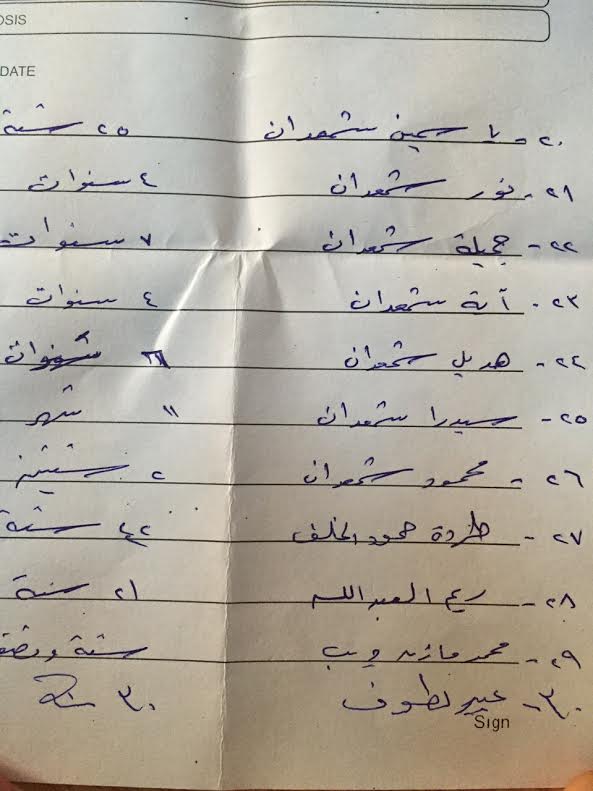 OSIS
DATE
٢٠- ياسمين شمعدان ٢٥ سنة
٢١- نور شمعدان ٤ سنوات
٢٢- جميلة شمعدان ٧ سنوات
٢٣- آية شمعدان ٤ سنوات
٢٤- هديل شمعدان
٢٥- سيدرا شمعدان ١١ شهر
٢٦- محمود شمعدان ٢ سنتين
٢٧- طردة حمود الخلف ٤٢ سنة
٢٨- ريم العبدالله ٢١ سنة
٢٩- محمد مازن ديب سنة ونصف
٣٠- عبير لطوف ٣٠ سنة
Sign